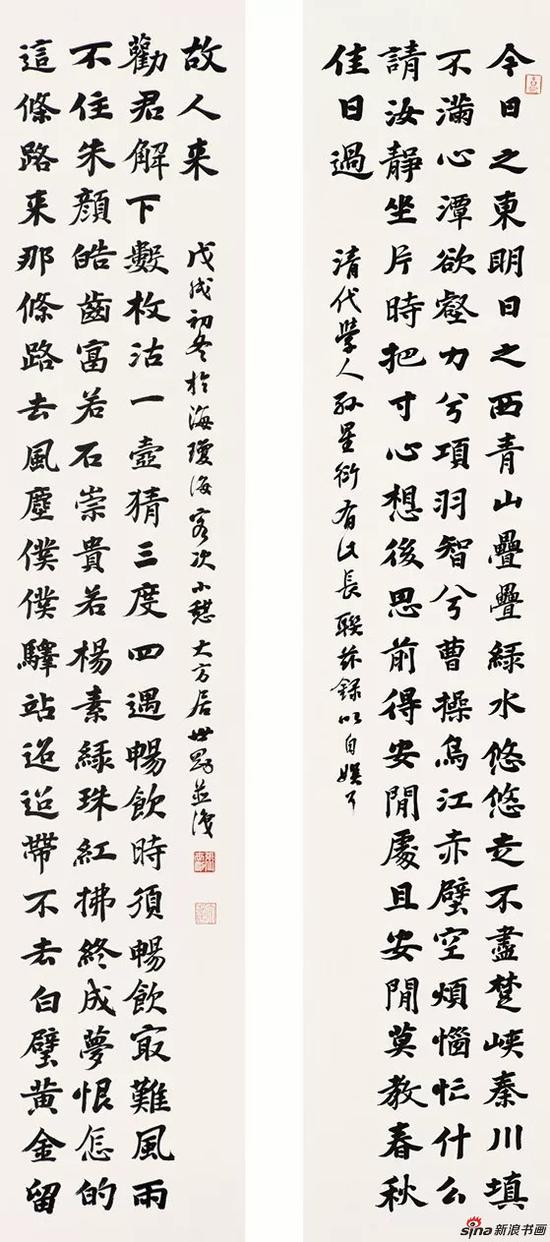 今日之東明日之西青山疊疊綠水悠悠走不盡楚峽秦川填
不滿心潭欲壑力兮項羽智兮曹操烏江赤壁空煩惱忙什么
請汝靜坐片時把寸心想後思前得安閒處且安閒莫教春秋
佳日過
清代學人孫星衍有此長聯茲錄以自娛耳
這條路来那條路去風塵僕僕驛站迢迢帶不去白璧黃金留
不住朱顏皓齒富若石崇貴若楊素綠珠紅拂終成夢恨怎的
勸君解下數枚沽一壺猜三度四遇暢飲時須暢飲冣難風雨
故人来
戊戌初冬於海瓊海客次小憩大方居世並識
sina新浪书画